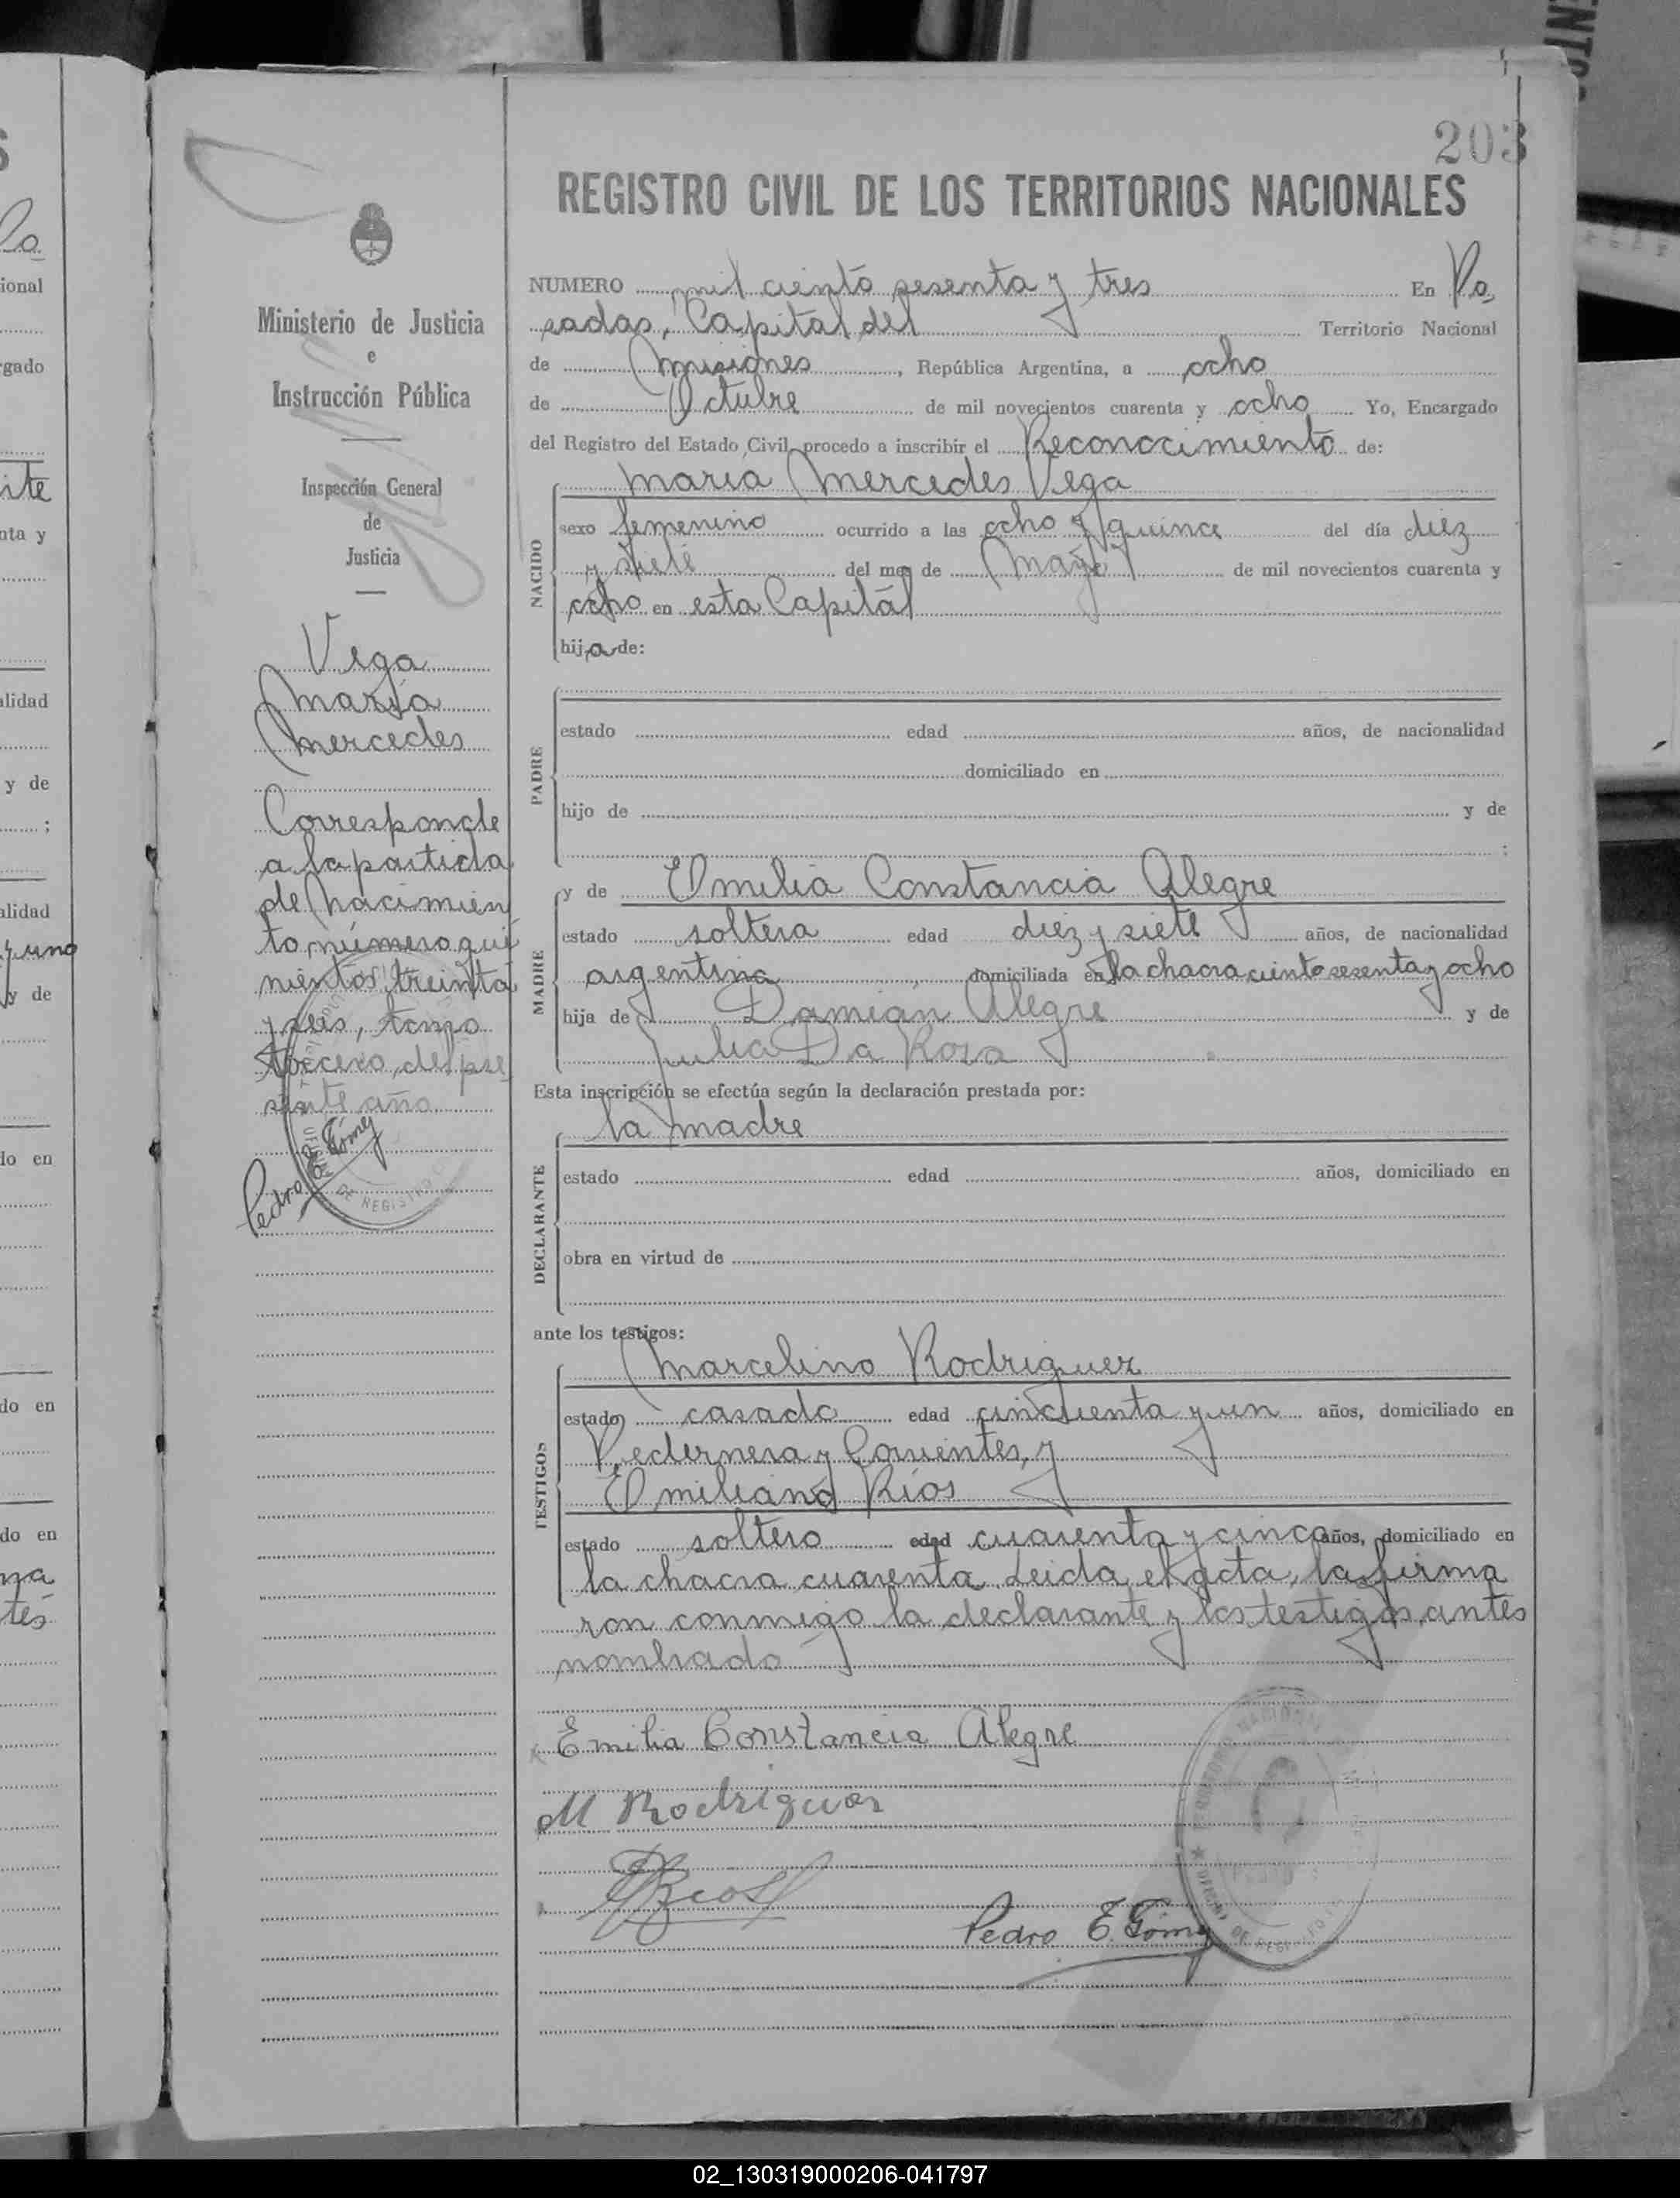 203
REGISTRO CIVIL DE LOS TERRITORIOS NACIONALES
NUMERO mil ciento sesenta y tres En Po
sadas, Capital del Territorio Nacional
de Misiones, República Argentina, a ocho
de Octubre de mil novecientos cuarenta y ocho Yo, Encargado
del Registro del Estado Civil, procedo a inscribir el Reconocimiento de:
NACIDO
Maria Mercedes Vega
sexo femenino ocurrido a las ocho y quince del día diez
y siete del mes de Mayo de mil novecientos cuarenta y
ocho en esta Capitál
hija de:
PADRE
estado edad años, de nacionalidad
domiciliado en
hijo de y de
;
MADRE
y de Emilia Constancia Alegre
estado soltera edad diez y siete años, de nacionalidad
argentina, domiciliada en la chacra ciento sesenta y ocho
hija de Damián Alegre y de
Julia Da Rosa
Esta inscripción se efectúa según la declaración prestada por:
DECLARANTE
la madre
estado edad años, domiciliado en
obra en virtud de
ante los testigos:
TESTIGOS
Marcelino Rodriguez
estado casado edad cincuenta y un años, domiciliado en
Pedernera y Corrientes, y
Emiliano Ríos
estado soltero edad cuarenta y cinco años, domiciliado en
la chacra cuarenta. Leida el acta, la firma
ron conmigo la declarante y los testigos antes
nombrado
Emilia Constancia Alegre
M Rodriguez
Pedro E. Gómez
Ministerio de Justicia
e
Instrucción Pública
Inspección General
de
Justicia
Vega
María
Mercedes
Corresponde
a la partida
de Nacimien
to número qui
nientos treinta
y seis, tomo
tercero, del pre
sente año
Pedro E. Gómez
DE REGISTRO
02_130319000206-041797